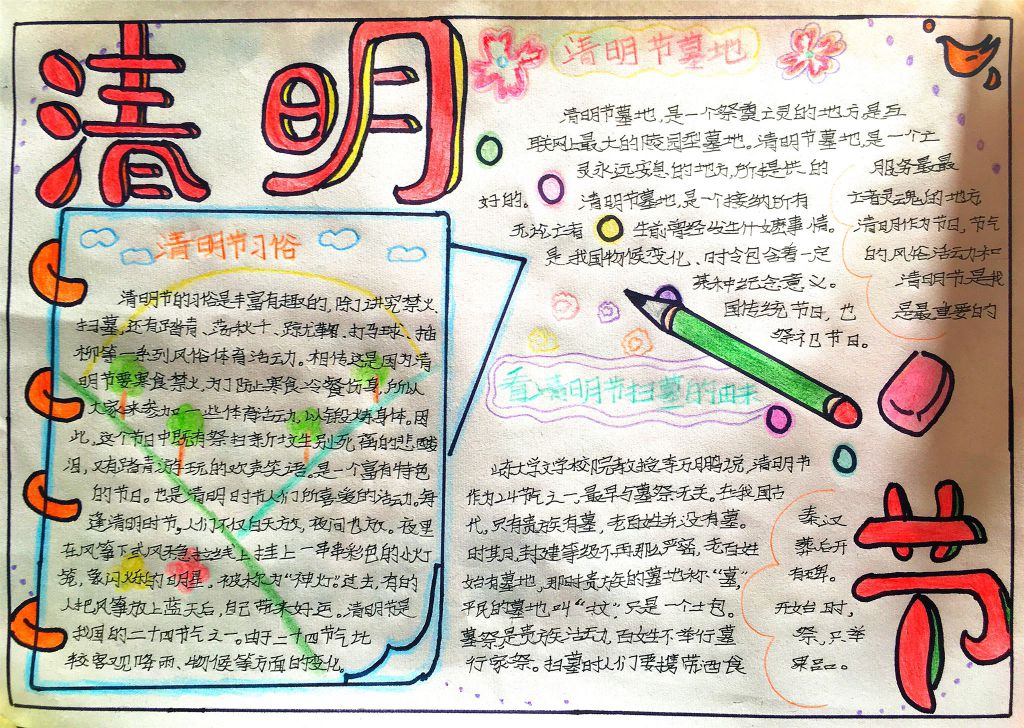 清明
节
清明节习俗
清明节的习俗是丰富有趣的，除了讲究禁火、
扫墓，还有踏青、荡秋千、蹴鞠、打马球、插
柳等一系列风俗体育活动。相传这是因为清
明节要寒食禁火，为了防止寒食冷餐伤身，所以
大家来参加一些体育活动，以锻炼身体。因
此，这个节日中既有祭扫新坟生别死离的悲酸
泪，又有踏青游玩的欢声笑语。是一个富有特色
的节日。也是清明时节人们所喜爱的活动。每
逢清明时节。人们不仅白天放，夜间也放。夜里
在风筝下或风稳拉线上挂上一串串彩色的小灯
笼，象闪烁的明星，被称为“神灯”过去，有的
人把风筝放上蓝天后，自己带来好运。清明节是
我国的二十四节气之一。由于二十四节气比
较客观降雨、物候等方面的变化。
清明节墓地
清明节墓地，是一个祭奠亡灵的地方，是互
联网上最大的陵园型墓地。清明节墓地，是一个亡
灵永远安息的地方，所提供的 服务最最
好的。 清明节墓地，是一个接纳所有 亡者灵魂的地方
无论亡者 生前曾经发生什么事情。 清明作为节日，节气
是我国物候变化、时令包含着一定 的风俗活动和
某种纪念意义。 清明节是我
国传统节日，也 是最重要的
祭祀节日。
看清明节扫墓的由来
大学文学校院教授李万鹏说，清明节
作为24节气之一，最早与墓祭无关。在我国古
代，只有贵族有墓，老百姓并没有墓。 秦汉
时某日，封建等级不再那么严密，老百姓 葬后开
始有墓地，那时贵族的墓地称“墓” 有碑。
平民的墓地，叫“坟”只是一个土包。 开始时，
墓祭是贵族活动，百姓不举行墓 祭，只举
行家祭。扫墓时人们要携带酒食